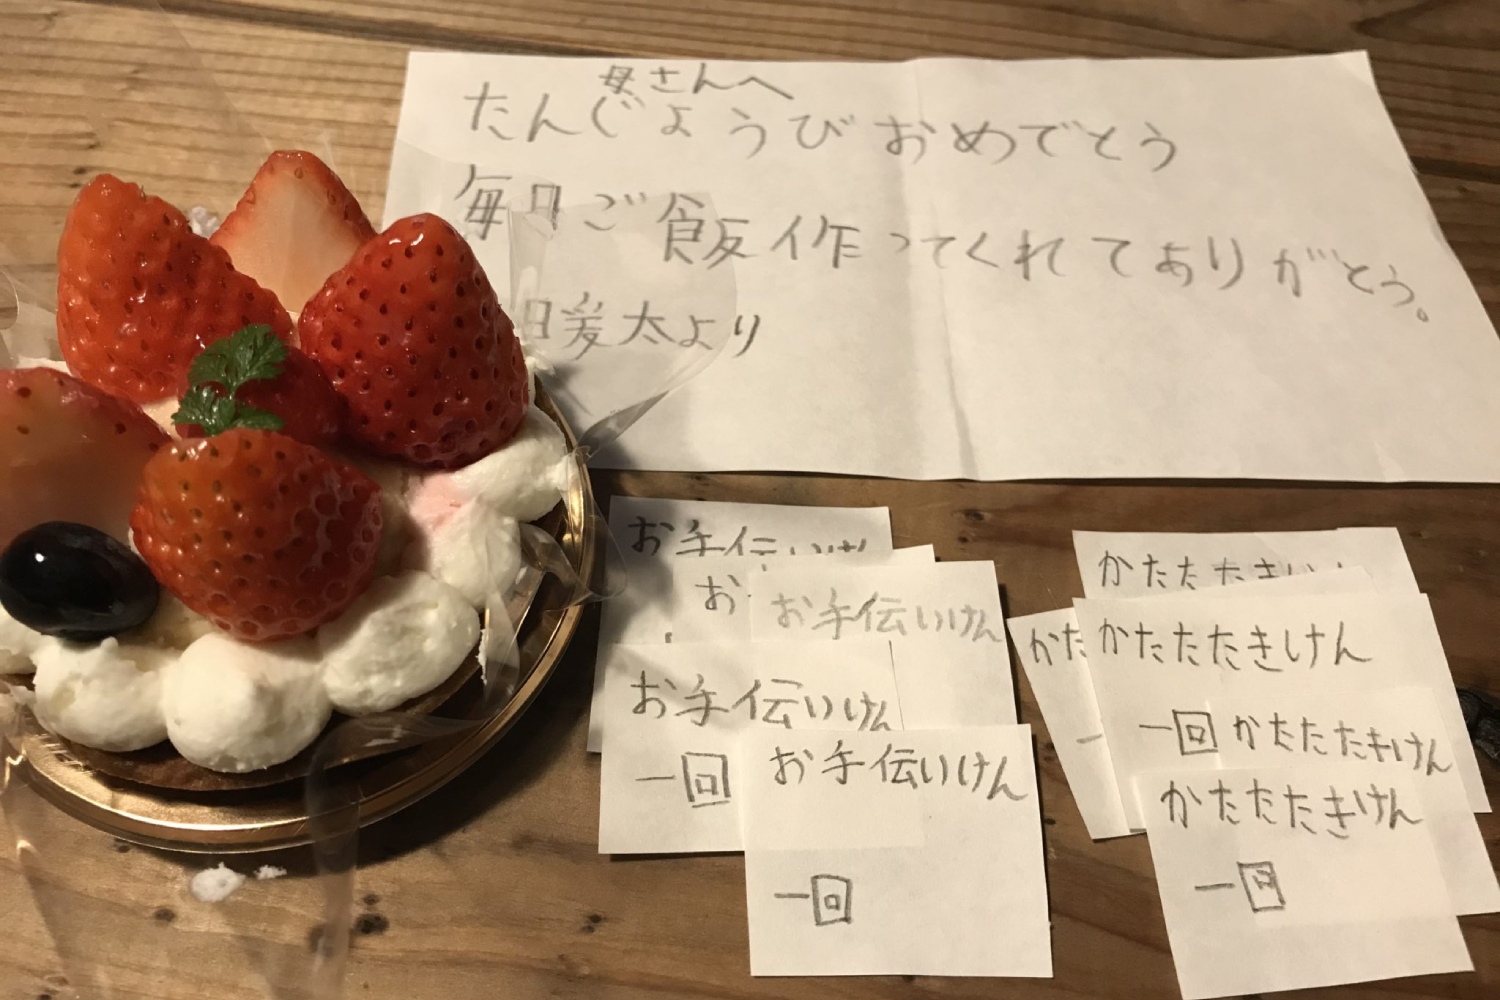 母さんへ
たんじょうびおめでとう
毎日ご飯作ってくれてありがとう。
暖太より
お手伝いけん
お
お手伝いけん
お手伝いけん
一回
お手伝いけん
一回
かたたたきけん
かた
かたたたきけん
一回
かたたたきけん
かたたたきけん
一回